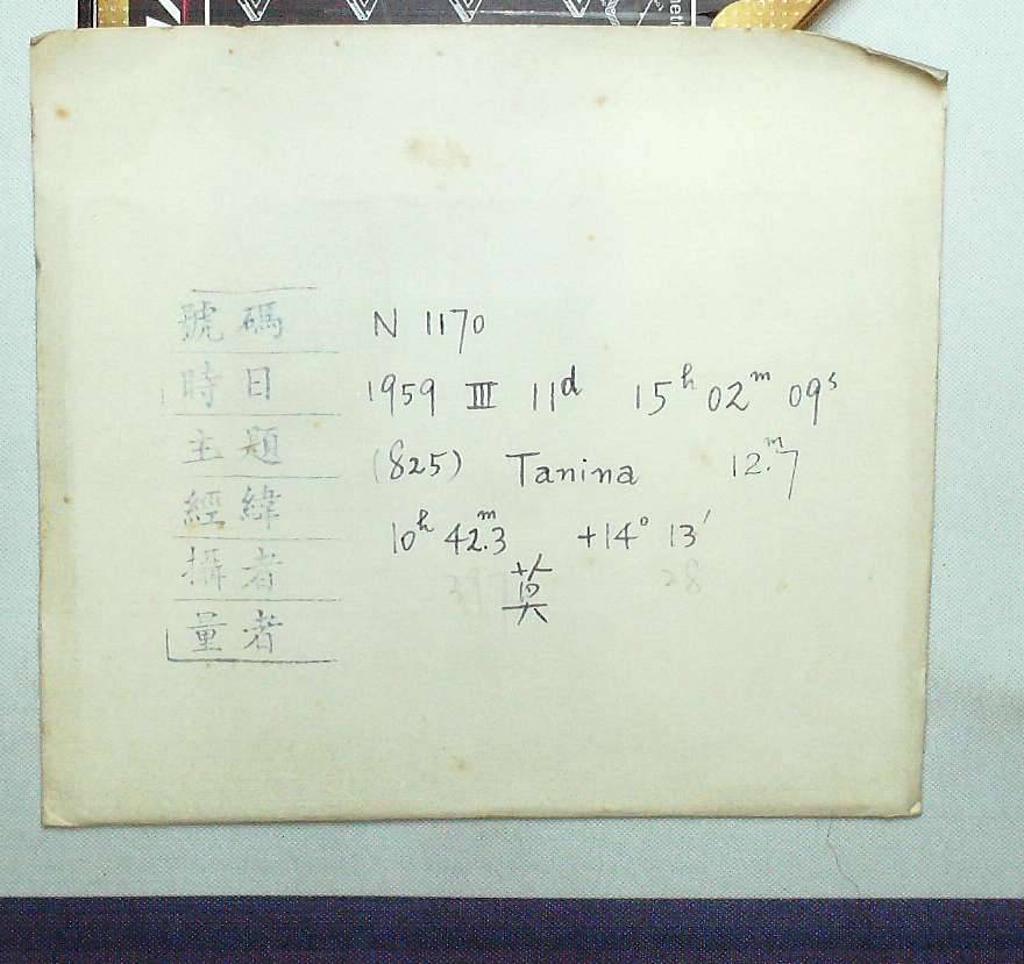 號碼 N 1170
時日 1959 III 11d 15h 02m 09s
主題 (825) Tanina 12.m7
經緯 10h 42.m3 +14° 13′
攝者 莫
量者